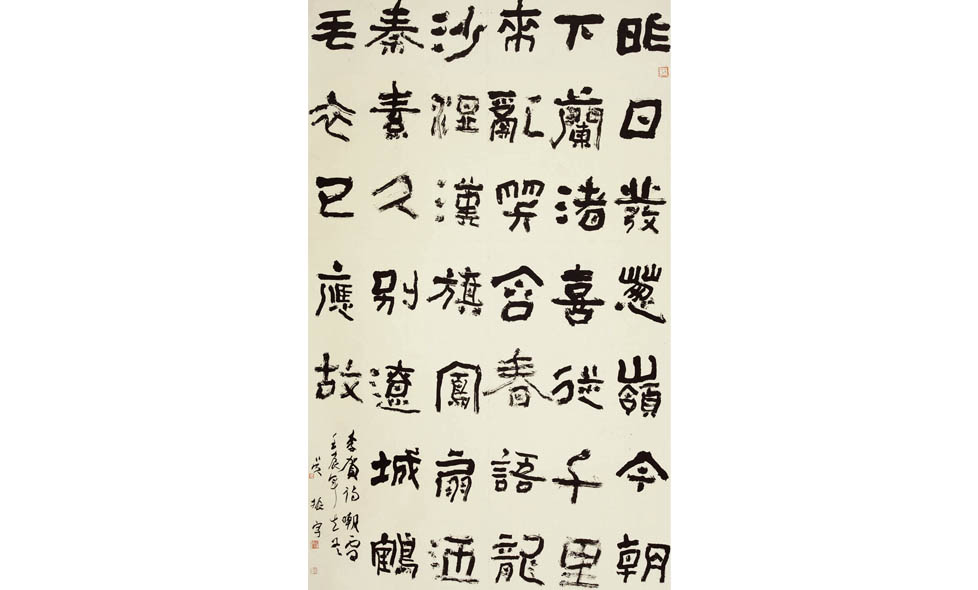 昨日發葱嶺今朝
下蘭渚喜從千里
來亂笑含春語龍
沙湿漢旗鳳扇迎
秦素久別遼城鶴
毛衣已應故
李賀詩嘲雪
壬辰年
振宇